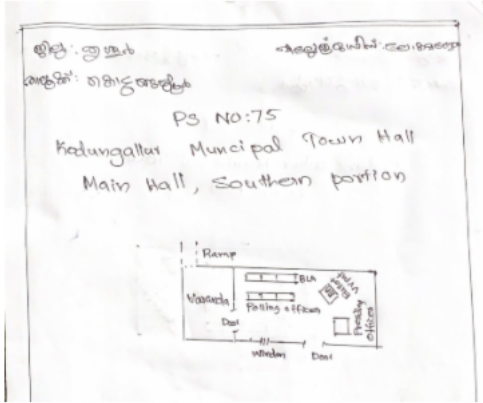 ജില്ല: തൃശ്ശൂർ
താലൂക്ക്: കൊടുങ്ങല്ലൂർ
PS NO:75
Kodungallur Muncipal Town Hall
Main Hall, Southern portion
Ramp
BLA
Varanda
Polling officers
Ballot
VVpat
Presiding
officer
Door
Window
Door